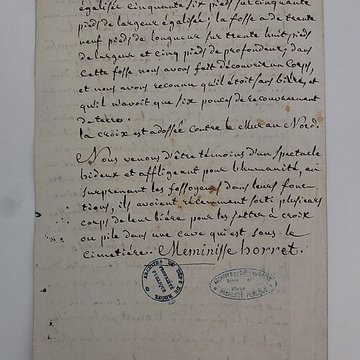 égalisée cinquante six pieds sur cinquante
pieds de largeur égalisée; la fosse a de trente
neuf pieds de longueur sur trente huit pieds
de largeur et cinq pieds de profondeur; dans
Cette fosse nous avons fait découvrir un Corps,
et nous avons reconnu qu'il étoit sans bière, et
qu'il n'avoit que six pouces de recouvrement
de terre.
la croix est adossée contre le Mur au Nord.
Nous venons d'être témoins d'un spectacle
hideux et affligeant pour l'humanité, en
surprenant les fossoyeurs dans leurs fonc
tions, ils avoient récemment sorti plusieurs
corps de leur bière pour les jetter à croix
ou pile dans une cave qui est sous le
Cimetière. Meminisse horret.